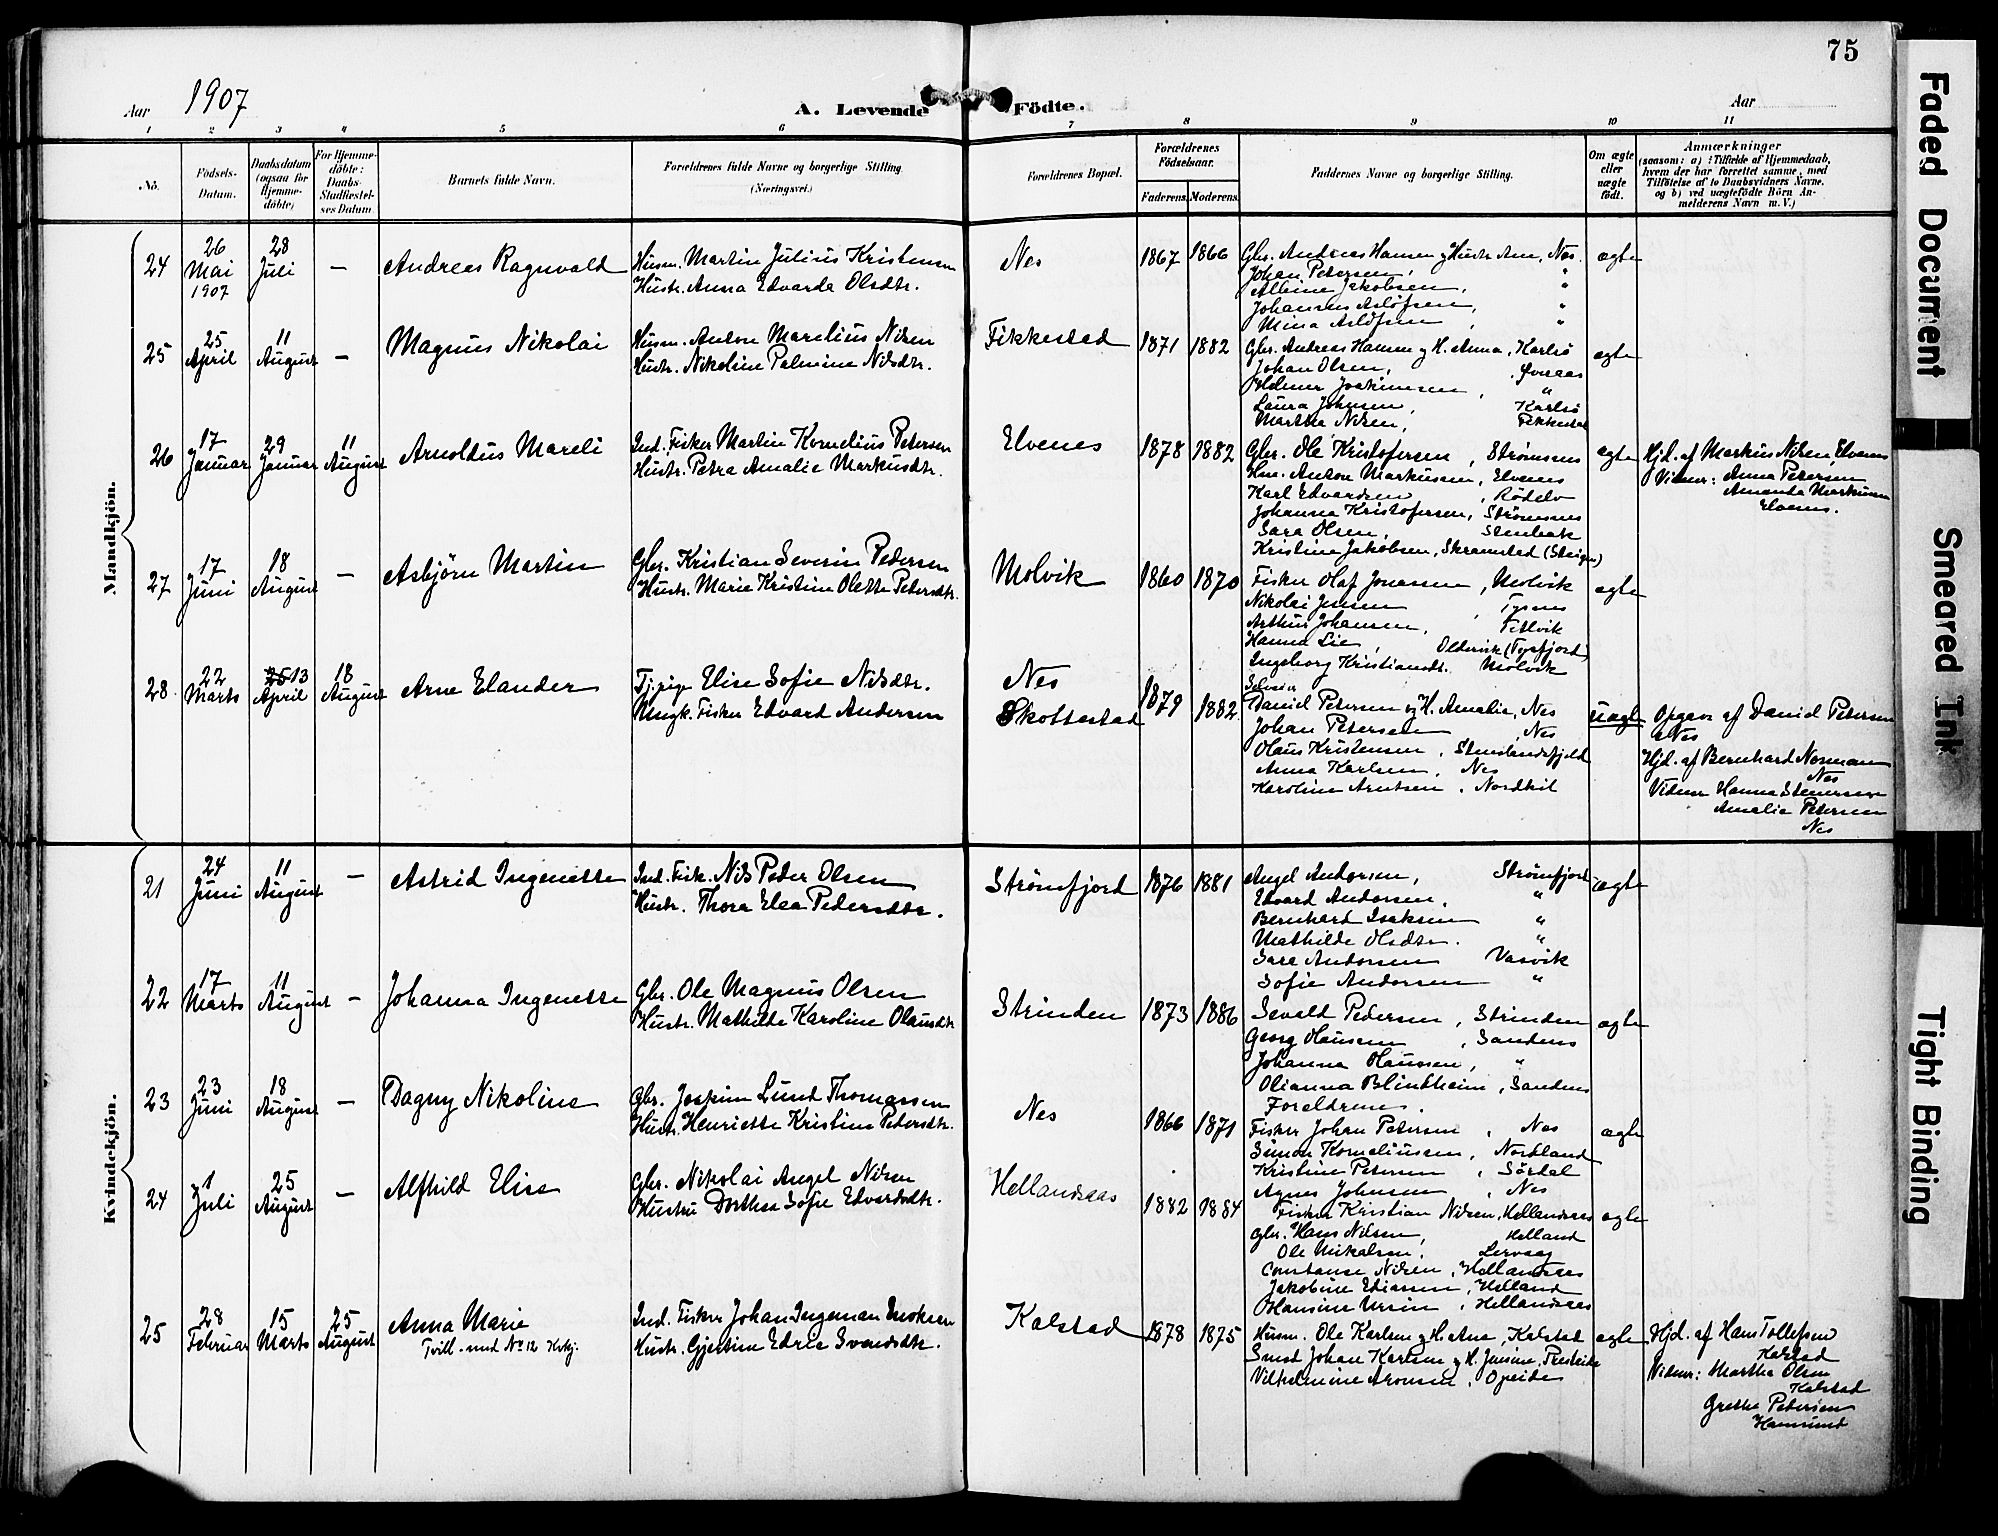 75
Aar 1907
A. Levende Födte.
Aar
1 2 3 4 5 6 7 8 9 10 11
No.
Födsels-Datum.
Daabsdatum (ogsaa for Hjemme-döbte)
For Hjemme-döbte: Daabs-Stadfæstel-ses Datum
Barnets fulde Navn.
Forældrenes fulde Navne og borgerlige Stilling
(Næringsvei.)
Forældrenes Bopæl.
Forældrenes Födselsaar.
Faderens. Moderens.
Faddernes Navne og borgerlige Stilling.
Om ægte eller uægte födt.
Anmærkninger
(saasom: a) i Tilfælde af Hjemmedaab,
hvem der har forrettet samme, med
Tilföielse af to Daabsvidners Navne,
og b) ved uægtefödte Börn An-
melderens Navn m. V.)
Mandkjön.
24
26 Mai 1907
28 Juli
—
Andreas Ragnvald
Husm. Martin Julius Kristensen
Hustr. Anna Edvarda Olsdtr.
Nes
1867 1866
Gbr. Andreas Hansen og Hustr. Ane, Nes.
Johan Petersen, "
Albine Jakobsen, "
Johannes Aslofsen, "
Mina Aslofsen, "
ægte
25
25 April
11 August
—
Magnus Nikolai
Husm. Anton Marelius Nilsen
Hustr. Nikoline Palmine Nilsdtr.
Fikkestad
1871 1882
Gbr. Andreas Hansen og H. Anna, Karlsö
Johan Olsen,
Helmer Joakimsen, "
Laura Johnsen, Karlsö
Martha Nilsen, Fikkestad
ægte
26
17 Januar
29 Januar
11 August
Arnoldus Mareli
Ind. Fisker Martin Kornelius Petersen
Hustr. Petra Amalie Markusdtr.
Elvenes
1878 1882
Gbr. Ole Kristofersen, Strømsnes
Hm. Anton Markussen, Elvenes
Karl Edvardsen, Rödelv
Johanna Kristofersen, Strømsnes
Sara Olsen, Stenbak
Kristine Jakobsen, Skramstad (Steigen)
ægte
Hjd. af Markus Nilsen, Elvenes
Vidner: Anna Petersen
Amanda Markussen
Elvenes.
27
17 Juni
18 August
—
Asbjörn Martin
Gbr. Kristian Severin Pedersen
Hustr. Marie Kristine Olette Petersdtr.
Molvik
1860 1870
Fisker Olaf Jonassen, Molvik
Nikolai Jensen, Tysnes
Arthur Johansen, Fitlvik
Hanna Lie, Oldervik (Tysfjord)
Ingeborg Kristiansdt. Molvik
ægte
28
22 Marts
13 April
18 August
Arne Elander
Tj.pige Elise Sofie Nilsdtr.
Ungk. Fisker Edvard Andersen
Nes
Skottestad
1879 1882
Daniel Petersen og H. Amalie, Nes
Johan Petersen, Nes
Olaus Kristensen, Stenslandsfjeld
Anna Karlsen, Nes
Karoline Arntsen, Nordkil
uægte
Opgave af Daniel Petersen
Nes
Hjd. af Bernhard Normann
Nes
Vidner Hanna Stenersen
Amalie Petersen
Nes
Kvindekjön.
21
24 Juni
11 August
—
Astrid Ingenette
Ind. Fisk. Nils Peder Olsen
Hustr. Thora Elea Pedersdtr.
Strömfjord
1876 1881
Angel Andorsen, Strömfjord
Edvard Andorsen, "
Bernhard Isaksen "
Mathilde Olsdtr. "
Sara Andorsen Vasvik
Sofie Andorsen "
ægte
22
17 Marts
11 August
—
Johanna Ingenette
Gbr. Ole Magnus Olsen
Hustr. Mathilde Karoline Olausdtr
Strinden
1873 1886
Sevald Pedersen, Strinden
Georg Olaussen, Sandnes
Johanna Olaussen, "
Olianna Blindheim, Sandnes
Foreldrene.
ægte
23
23 Juni
18 August
—
Dagny Nikoline
Gbr. Joakim Lund Thomassen
Hustr. Henriette Kristine Pedersdtr.
Nes
1866 1871
Fisker Johan Petersen, Nes
Simon Korneliussen, Nordland
Kristine Petersen, Sördal
Agnes Johnsen, Nes
ægte
24
1 Juli
25 August
—
Alfhild Elise
Gbr. Nikolai Angel Nilsen
Hustru Dorthea Sofie Edvardsdtr.
Hellandsaas
1882 1884
Fisker Kristian Nilsen, Hellandsaas
Gbr. Hans Nilsen, Helland
Ole Mikalsen, Lervaag
Constanse Nilsen, Hellandsaas
Jakobine Ediassen, Helland
Hansine Ursin, Hellandsaas
ægte
25
28 Februar
15 Marts
25 August
Anna Marie
Tvill. med No 12 Kvkj.
Ind. Fisker Johan Ingeman Enoksen
Hustr. Gjertine Edvie Svendsdtr.
Kalstad
1878 1875
Husm. Ole Karlsen og H. Ane, Kalstad
Smed Johan Karlsen og H. Jensine, Presteide
Vilhelmine Aronsen, Opeide
ægte
Hjd. af Hans Tollefsen
Kalstad
Vidner: Martha Olsen
Kalstad
Grethe Pedersen
Hamsund
Faded Document
Smeared Ink
Tight Binding